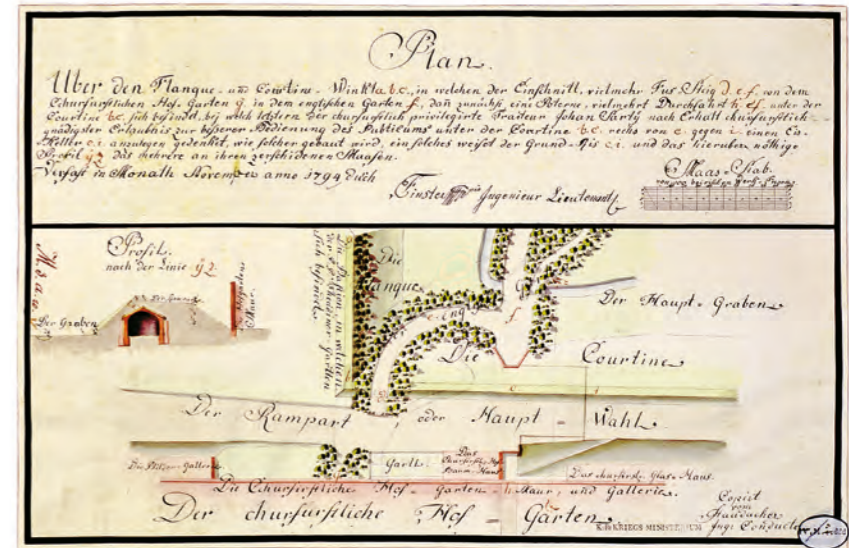 Plan.
Uber den Flanque- und Courtine-Winkl a.b.c., in welchen der Einschnitt, vielmehr Fus-Steig d.e.f. von dem
Churfürstlichen Hof-Garten g. in dem englischen Garten f., dan zunächst eine Poterne, vielmehrt Durchfahrt h. unter der
Courtine b.c. sich befindet, bey welch letztern der churfürstlich privilegirte Traiteur Johan Sarty nach Erhalt churfürstlich
gnädigster Erlaubnis zur besserer Bedienung des Publicums unter der Courtine b.c. rechs von c. gegen i. einen Eis-
Keller c.i. anzulegen gedenket, wie solcher gebaut wird, ein solches weiset der Grund-Ris c.i. und das hierüber nöthige
Profil y.z. das mehrere an ihren verschidenen Maasen.
Verfast in Monath November anno 1794 durch
Ingenieur Lieutenant.
Maas-Stab.
Profil.
nach der Linie y.z.
Der Graben
Die
Flanque
Der Haupt-Graben
Die Courtine
Der Rampart, oder Haupt-Wahl.
Gartl.
Das churfürstl. Glas-Haus.
Die Churfürstliche Hof-Garten-Maur, und Gallerie.
Der churfürstliche Hof-Garten.
Copirt
vom
Ing: Conducteur
K.B. KRIEGS MINISTERIUM